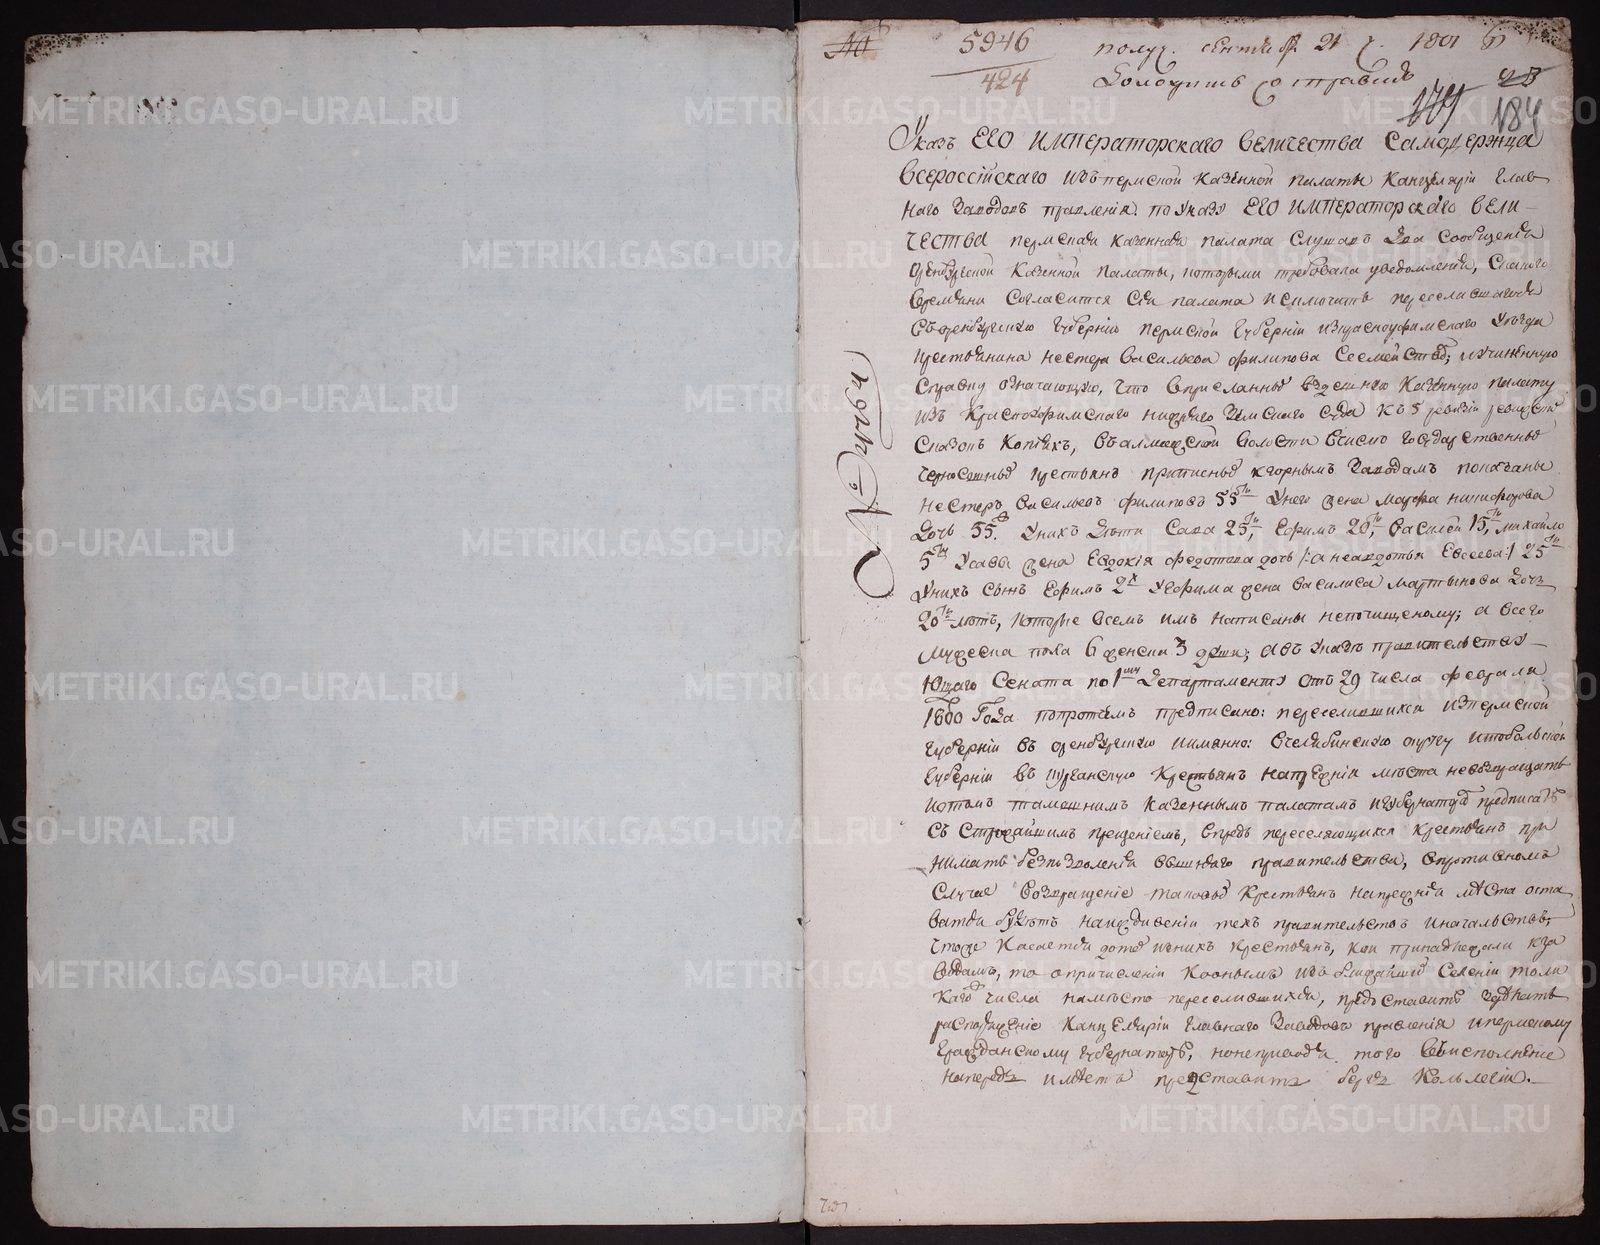 5946 получ. сентябр. 21 ч. 1801
424 Доложить со справкою
179 184
Указъ ЕГО ИМПЕРАТОРСКАГО ВЕЛИЧЕСТВА САМОДЕРЖЦА
ВСЕРОССІЙСКАГО изъ пермской казенной палаты Канцеляріи глав
наго заводовъ правленія. по указу ЕГО ИМПЕРАТОРСКАГО ВЕЛИ-
ЧЕСТВА пермская казенная палата слушавъ два сообщенія
оренбургской казенной палаты, которыми требовала уведомленія, с какого
времяни согласится сія палата исключить переселившагося
въ оренбургскую губернію пермской губерніи из красноуфимскаго уезда
крестьянина нестера васильева филипова с семейством; и учиненную
справку означающую, что в присланных в здешнюю казенную палату
изъ красноуфимскаго нижняго земскаго суда к 5 ревизіи ревизских
сказокъ копіяхъ, въ волости в число государственных
черносошных крестьянъ приписных к горнымъ заводамъ показаны
нестеръ васильевъ филиповъ 55 у него жена марфа никифорова
дочь 55. у нихъ дети сава 25, ефимъ 20, василей 15, михайло
5 у савы жена евдокія федотова дочь /: а не авдотья евсеева :/ 25
у нихъ сынъ ефимъ 2 у ефима жена василиса мартынова дочь
20 летъ, которые всемъ имъ написаны непочищеному; а всего
мужеска пола 6 женска 3 души; а въ указе правительству-
ющаго Сената по 1му департаменту отъ 29 числа февраля
1800 года попротчемъ предписано: переселившихся изъ пермской
губерніи въ оренбургскую имянно: в челябинскую округу и тобольской
губерніи въ курганскую крестьянъ на прежнія места не возвращать
и о томъ тамошнимъ казеннымъ палатамъ и губернатору предписать
съ строжайшимъ прещеніемъ, впредь переселяющихся крестьянъ при
нимать без позволенія вышняго правительства, в противномъ
случае возвращеніе таковых крестьянъ на прежнія места оста
ватся будетъ на иждивеніи техъ правительствъ и начальствъ,
что же касается до тех из нихъ крестьянъ, кои принадлежали к за
водамъ, то о причисленіи к онымъ изъ ближайших селеній толи
каго числа на место переселившихся, предоставить зделать
распоряженіе Канцеляріи главнаго заводовъ правленія и пермскому
гражданскому губернатору, но не приводя того въ исполненіе
напередъ иметъ представить бергъ коллегіи.-